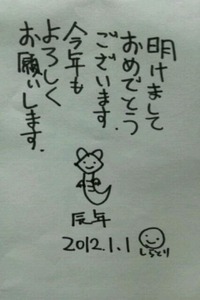 明けまして
おめでとう
ございます.
今年も
よろしく
お願いします.
辰年
2012.1.1
しらとり